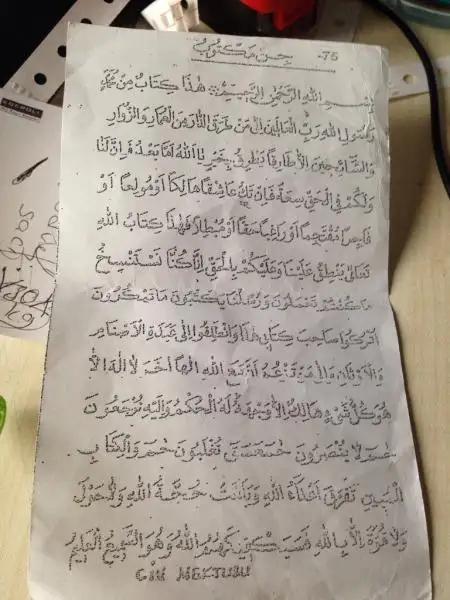 -75 جن مكتوب
بسم الله الرحمن الرحيم هٰذَا كِتَابٌ مِنْ مُحَمَّدٍ
رَسُولِ اللهِ رَبِّ الْعَالَمِينَ اِلَى مَنْ طَرَقَ الدَّارَ مِنَ الْعُمَّارِ وَالزُّوَّارِ
وَالسَّائِحِينَ اِلَّا طَارِقًا يَطْرُقُ بِخَيْرٍ اَمَّا بَعْدُ فَاِنَّ لَنَا
وَلَكُمْ فِي الْحَقِّ سِعَةً فَاِنْ تَكُ عَاشِقًا اَوْ مُولِعًا اَوْ
فَاجِرًا مُقْتَحِمًا اَوْ رَاغِبًا حَقًّا اَوْ مُبْطِلًا فَهٰذَا كِتَابُ اللهِ
تَعَالَى يَنْطِقُ عَلَيْنَا وَعَلَيْكُمْ بِالْحَقِّ اِنَّا كُنَّا نَسْتَنْسِخُ
مَا كُنْتُمْ تَعْمَلُونَ وَرُسُلُنَا يَكْتُبُونَ مَا تَمْكُرُونَ
اُتْرُكُوا صَاحِبَ كِتَابِي هٰذَا وَانْطَلِقُوا اِلَى عَبَدَةِ الْاَصْنَامِ
وَالْاَوْثَانِ وَاِلَى مَنْ تَزْعُمُ اَنَّ مَعَ اللهِ اِلٰهًا اٰخَرَ لَا اِلٰهَ اِلَّا
هُوَ كُلُّ شَيْءٍ هَالِكٌ اِلَّا وَجْهَهُ لَهُ الْحُكْمُ وَاِلَيْهِ تُرْجَعُونَ
حٰمٓ لَا يُنْصَرُونَ حٰمٓعٓسٓقٓ تُغْلَبُونَ حٰمٓ وَالْكِتَابِ
الْمُبِينِ تَفَرَّقَ اَعْدَاءُ اللهِ وَبَلَغَتْ حُجَّةُ اللهِ وَلَا حَوْلَ
وَلَا قُوَّةَ اِلَّا بِاللهِ فَسَيَكْفِيكَهُمُ اللهُ وَهُوَ السَّمِيعُ الْعَلِيمُ
CIN MEKTUBU